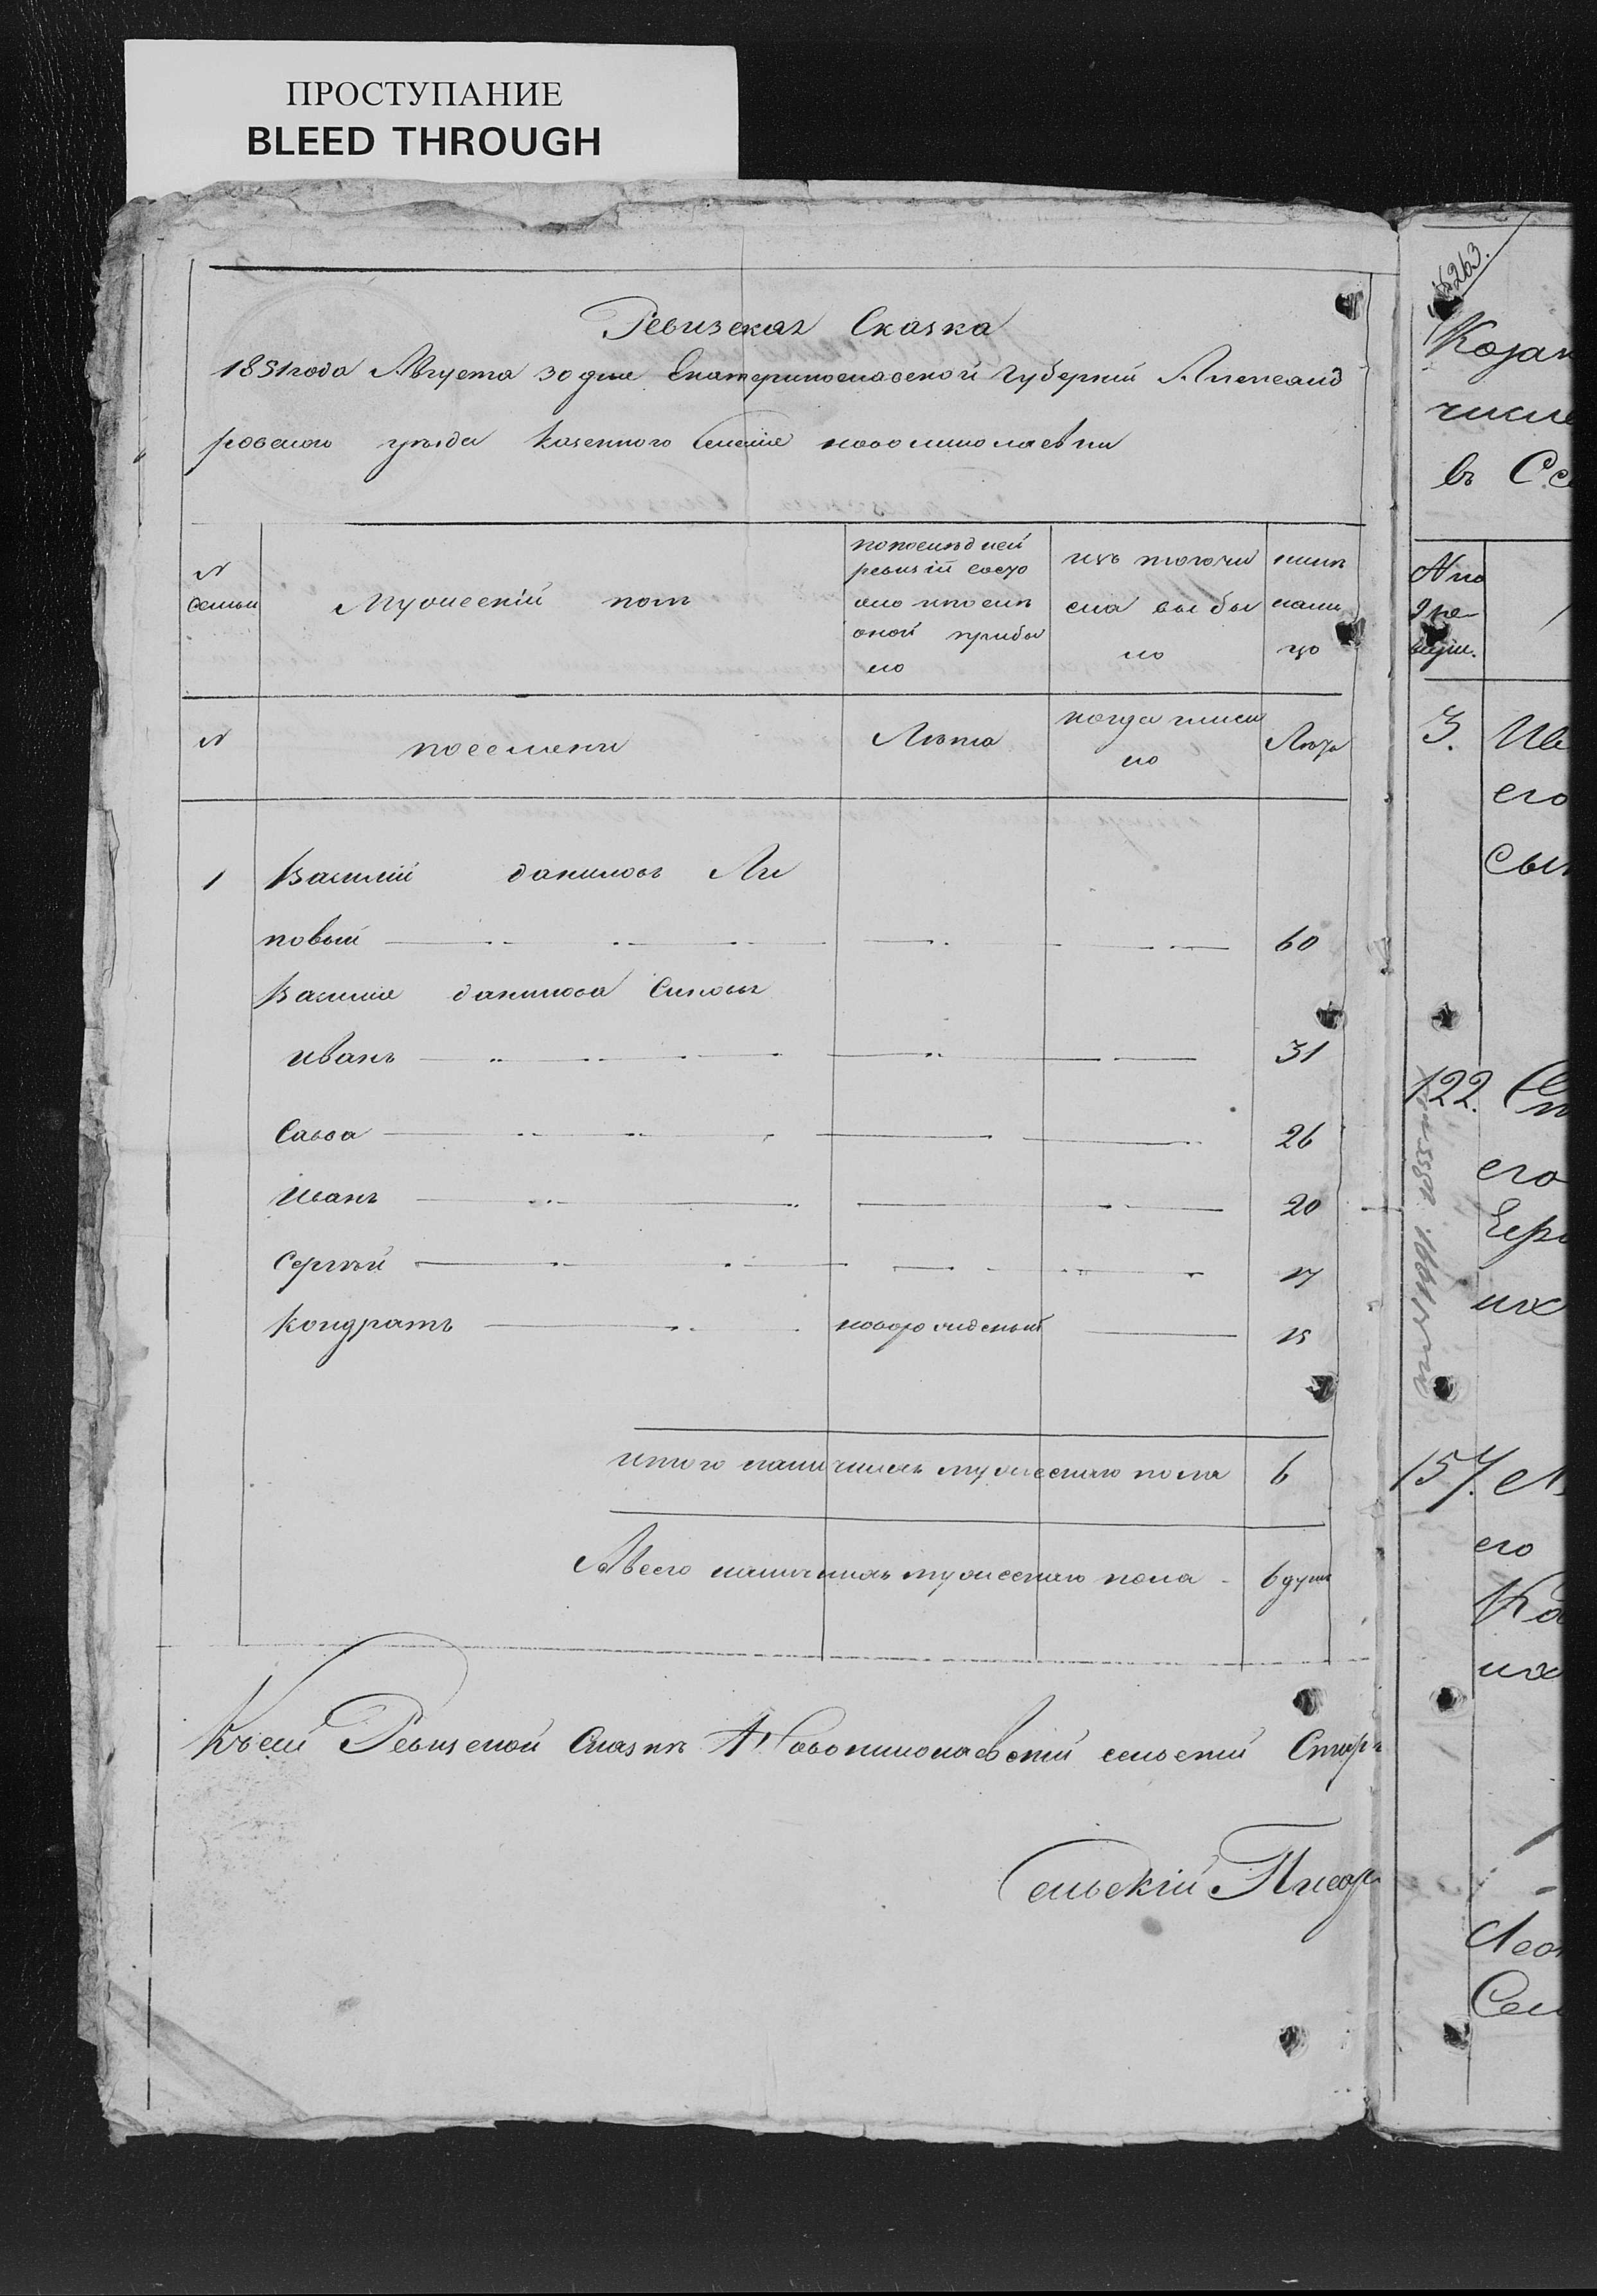 ПРОСТУПАНИЕ
BLEED THROUGH
Ревизская Сказка
1851 года Августа 30 дня Екатеринославской Губернии Александ
ровского уезда Казенного Селения новониколаевки
N
семьи
Мужеский полъ
попоследней
ревизіи состо
яло ипослѣ
оной прибы
ло
изъ того чи
сла выбы
ло
нынѣ
налиц
цо
N
поселяни
Лѣта
когда имен
но
Лѣта
1
Василій даниловъ Ли
повый 60
Василия данилова Синовья
иванъ 31
Савва 26
иванъ 20
Сергѣй 17
Кондратъ новорожденый 15
итого наличныхъ мужескаго пола 6
Авсего наличныхъ мужескаго пола - 6 душъ
Ксей Ревизской Сказкѣ Новониколаевский сельский Стар
Сельскій Писар
263.
Козан
числе
въ С
N по
9 ре-
визіи.
3. Ив
его
сын
122.
его
их
157.
его
их